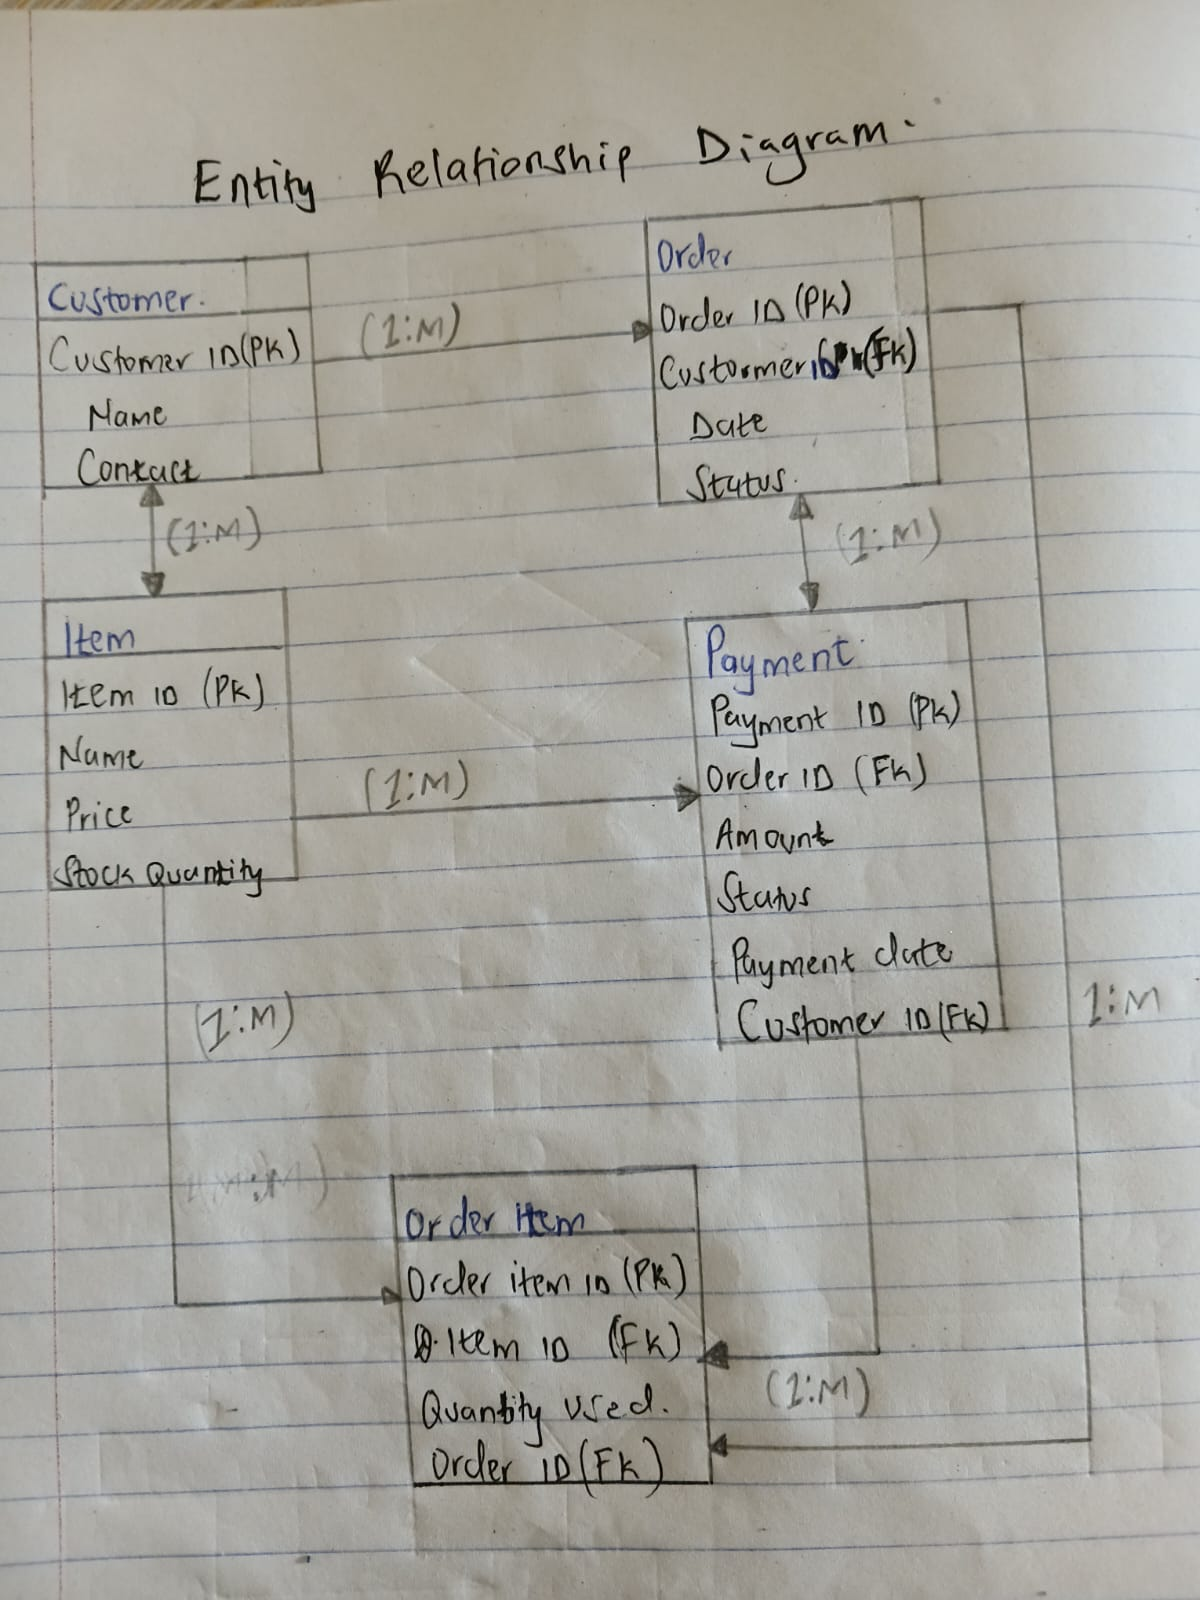 Entity Relationship Diagram.
Customer.
Customer ID(PK)
Name
Contact
(1:M)
Order
Order ID (PK)
Custormer ID (FK)
Date
Status.
(1:M)
(1:M)
Item
Item ID (PK)
Name
Price
Stock Quantity
(1:M)
Payment
Payment ID (PK)
Order ID (FK)
Amount
Status
Payment date
Customer ID (FK)
(1:M)
1:M
Order item
Order item ID (PK)
Item ID (FK)
Quantity used.
Order ID (FK)
(1:M)